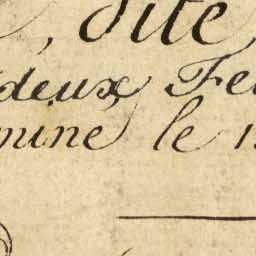 , dite
deux Fe
mine le 1